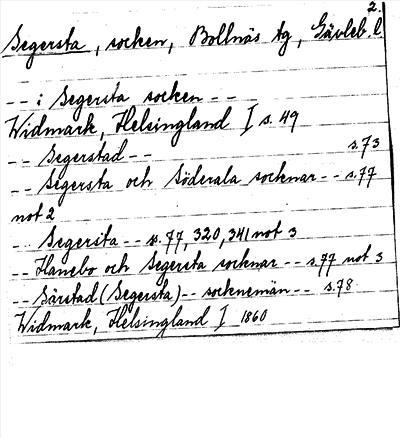 2.
Segersta, socken, Bollnäs tg, Gävleb. l.
-- i Segersta socken --
Widmark, Helsingland I s. 49
-- Segerstad -- s. 73
-- Segersta och Söderala socknar -- s. 77
not 2
-- Segersta -- s. 77, 320, 341 not 3
-- Hanebo och Segersta socknar -- s. 77 not 3
-- Särstad (Segersta) -- socknemän -- s. 78
Widmark, Helsingland I 1860